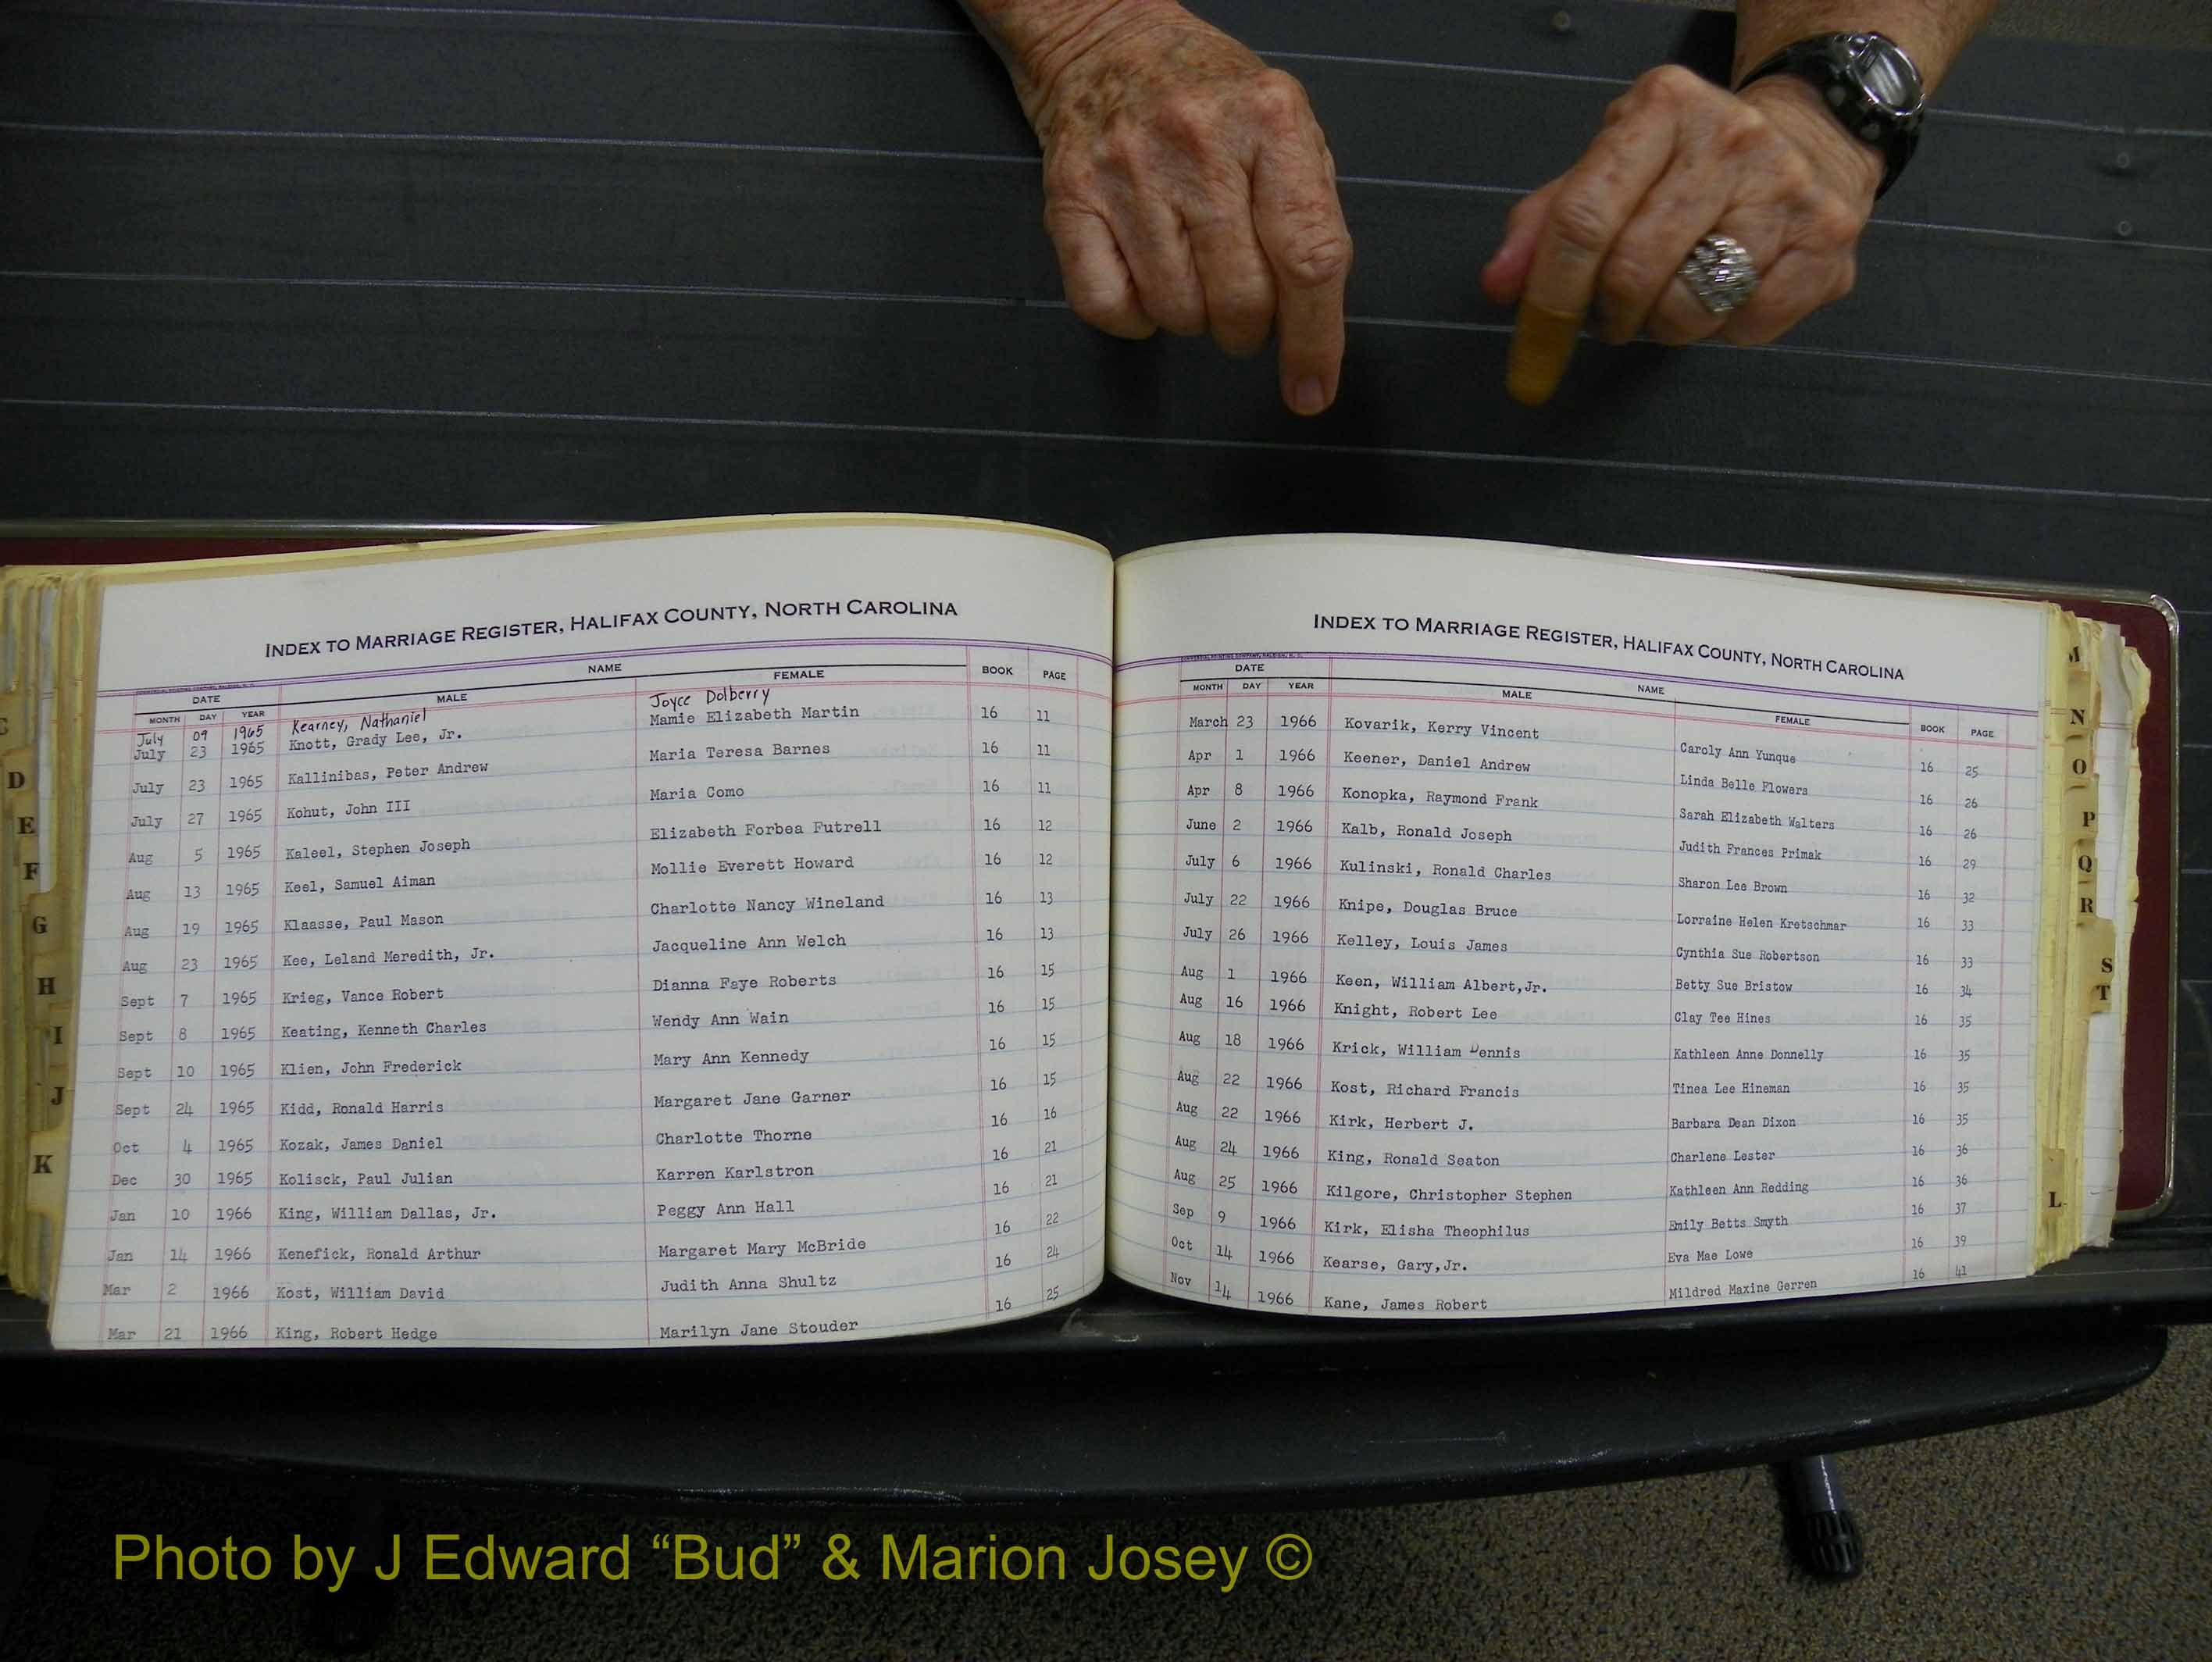 INDEX TO MARRIAGE REGISTER, HALIFAX COUNTY, NORTH CAROLINA
DATE NAME BOOK PAGE
MONTH DAY YEAR MALE FEMALE
July 09 1965 Kearney, Nathaniel Joyce Dolberry
July 23 1965 Knott, Grady Lee, Jr. Mamie Elizabeth Martin 16 11
July 23 1965 Kallinibas, Peter Andrew Maria Teresa Barnes 16 11
July 27 1965 Kohut, John III Maria Como 16 11
Aug 5 1965 Kaleel, Stephen Joseph Elizabeth Forbea Futrell 16 12
Aug 13 1965 Keel, Samuel Aiman Mollie Everett Howard 16 12
Aug 19 1965 Klaasse, Paul Mason Charlotte Nancy Wineland 16 13
Aug 23 1965 Kee, Leland Meredith, Jr. Jacqueline Ann Welch 16 13
Sept 7 1965 Krieg, Vance Robert Dianna Faye Roberts 16 15
Sept 8 1965 Keating, Kenneth Charles Wendy Ann Wain 16 15
Sept 10 1965 Klien, John Frederick Mary Ann Kennedy 16 15
Sept 24 1965 Kidd, Ronald Harris Margaret Jane Garner 16 15
Oct 4 1965 Kozak, James Daniel Charlotte Thorne 16 16
Dec 30 1965 Kolisck, Paul Julian Karren Karlstron 16 21
Jan 10 1966 King, William Dallas, Jr. Peggy Ann Hall 16 21
Jan 14 1966 Kenefick, Ronald Arthur Margaret Mary McBride 16 22
Mar 2 1966 Kost, William David Judith Anna Shultz 16 24
Mar 21 1966 King, Robert Hedge Marilyn Jane Stouder 16 25
INDEX TO MARRIAGE REGISTER, HALIFAX COUNTY, NORTH CAROLINA
DATE NAME BOOK PAGE
MONTH DAY YEAR MALE FEMALE
March 23 1966 Kovarik, Kerry Vincent Caroly Ann Yunque 16 25
Apr 1 1966 Keener, Daniel Andrew Linda Belle Flowers 16 26
Apr 8 1966 Konopka, Raymond Frank Sarah Elizabeth Walters 16 26
June 2 1966 Kalb, Ronald Joseph Judith Frances Primak 16 29
July 6 1966 Kulinski, Ronald Charles Sharon Lee Brown 16 32
July 22 1966 Knipe, Douglas Bruce Lorraine Helen Kretschmar 16 33
July 26 1966 Kelley, Louis James Cynthia Sue Robertson 16 33
Aug 1 1966 Keen, William Albert,Jr. Betty Sue Bristow 16 34
Aug 16 1966 Knight, Robert Lee Clay Tee Hines 16 35
Aug 18 1966 Krick, William Dennis Kathleen Anne Donnelly 16 35
Aug 22 1966 Kost, Richard Francis Tinea Lee Hineman 16 35
Aug 22 1966 Kirk, Herbert J. Barbara Dean Dixon 16 35
Aug 24 1966 King, Ronald Seaton Charlene Lester 16 36
Aug 25 1966 Kilgore, Christopher Stephen Kathleen Ann Redding 16 36
Sep 9 1966 Kirk, Elisha Theophilus Emily Betts Smyth 16 37
Oct 14 1966 Kearse, Gary,Jr. Eva Mae Lowe 16 39
Nov 14 1966 Kane, James Robert Mildred Maxine Gerren 16 41
D
E
F
G
H
I
J
K
M
N
O
P
Q
R
S
T
L
Photo by J Edward “Bud” & Marion Josey ©